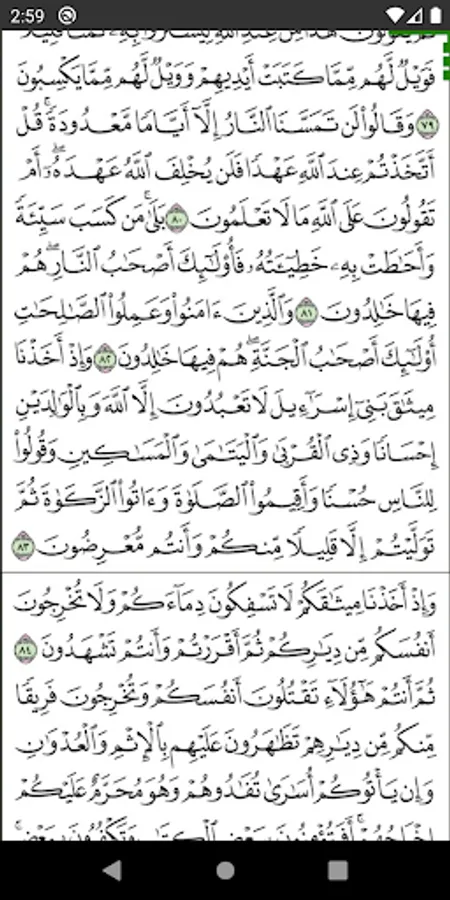 2:59
ثُمَّ يَقُولُونَ هَٰذَا مِنْ عِندِ ٱللَّهِ لِيَشْتَرُوا۟ بِهِۦ ثَمَنًا قَلِيلًا
فَوَيْلٌ لَّهُم مِّمَّا كَتَبَتْ أَيْدِيهِمْ وَوَيْلٌ لَّهُم مِّمَّا يَكْسِبُونَ
٧٩ وَقَالُوا۟ لَن تَمَسَّنَا ٱلنَّارُ إِلَّآ أَيَّامًا مَّعْدُودَةً ۚ قُلْ
أَتَّخَذْتُمْ عِندَ ٱللَّهِ عَهْدًا فَلَن يُخْلِفَ ٱللَّهُ عَهْدَهُۥٓ ۖ أَمْ
تَقُولُونَ عَلَى ٱللَّهِ مَا لَا تَعْلَمُونَ ٨٠ بَلَىٰ ۚ مَن كَسَبَ سَيِّئَةً
وَأَحَٰطَتْ بِهِۦ خَطِيٓـَٔتُهُۥ فَأُو۟لَٰٓئِكَ أَصْحَٰبُ ٱلنَّارِ ۖ هُمْ
فِيهَا خَٰلِدُونَ ٨١ وَٱلَّذِينَ ءَامَنُوا۟ وَعَمِلُوا۟ ٱلصَّٰلِحَٰتِ
أُو۟لَٰٓئِكَ أَصْحَٰبُ ٱلْجَنَّةِ ۖ هُمْ فِيهَا خَٰلِدُونَ ٨٢ وَإِذْ أَخَذْنَا
مِيثَٰقَ بَنِىٓ إِسْرَٰٓءِيلَ لَا تَعْبُدُونَ إِلَّا ٱللَّهَ وَبِٱلْوَٰلِدَيْنِ
إِحْسَانًا وَذِى ٱلْقُرْبَىٰ وَٱلْيَتَٰمَىٰ وَٱلْمَسَٰكِينِ وَقُولُوا۟
لِلنَّاسِ حُسْنًا وَأَقِيمُوا۟ ٱلصَّلَوٰةَ وَءَاتُوا۟ ٱلزَّكَوٰةَ ثُمَّ
تَوَلَّيْتُمْ إِلَّا قَلِيلًا مِّنكُمْ وَأَنتُم مُّعْرِضُونَ ٨٣
وَإِذْ أَخَذْنَا مِيثَٰقَكُمْ لَا تَسْفِكُونَ دِمَآءَكُمْ وَلَا تُخْرِجُونَ
أَنفُسَكُم مِّن دِيَٰرِكُمْ ثُمَّ أَقْرَرْتُمْ وَأَنتُمْ تَشْهَدُونَ ٨٤
ثُمَّ أَنتُمْ هَٰٓؤُلَآءِ تَقْتُلُونَ أَنفُسَكُمْ وَتُخْرِجُونَ فَرِيقًا
مِّنكُم مِّن دِيَٰرِهِمْ تَظَٰهَرُونَ عَلَيْهِم بِٱلْإِثْمِ وَٱلْعُدْوَٰنِ
وَإِن يَأْتُوكُمْ أُسَٰرَىٰ تُفَٰدُوهُمْ وَهُوَ مُحَرَّمٌ عَلَيْكُمْ
إِخْرَاجُهُمْ ۚ أَفَتُؤْمِنُونَ بِبَعْضِ ٱلْكِتَٰبِ وَتَكْفُرُونَ بِبَعْضٍ ۚ